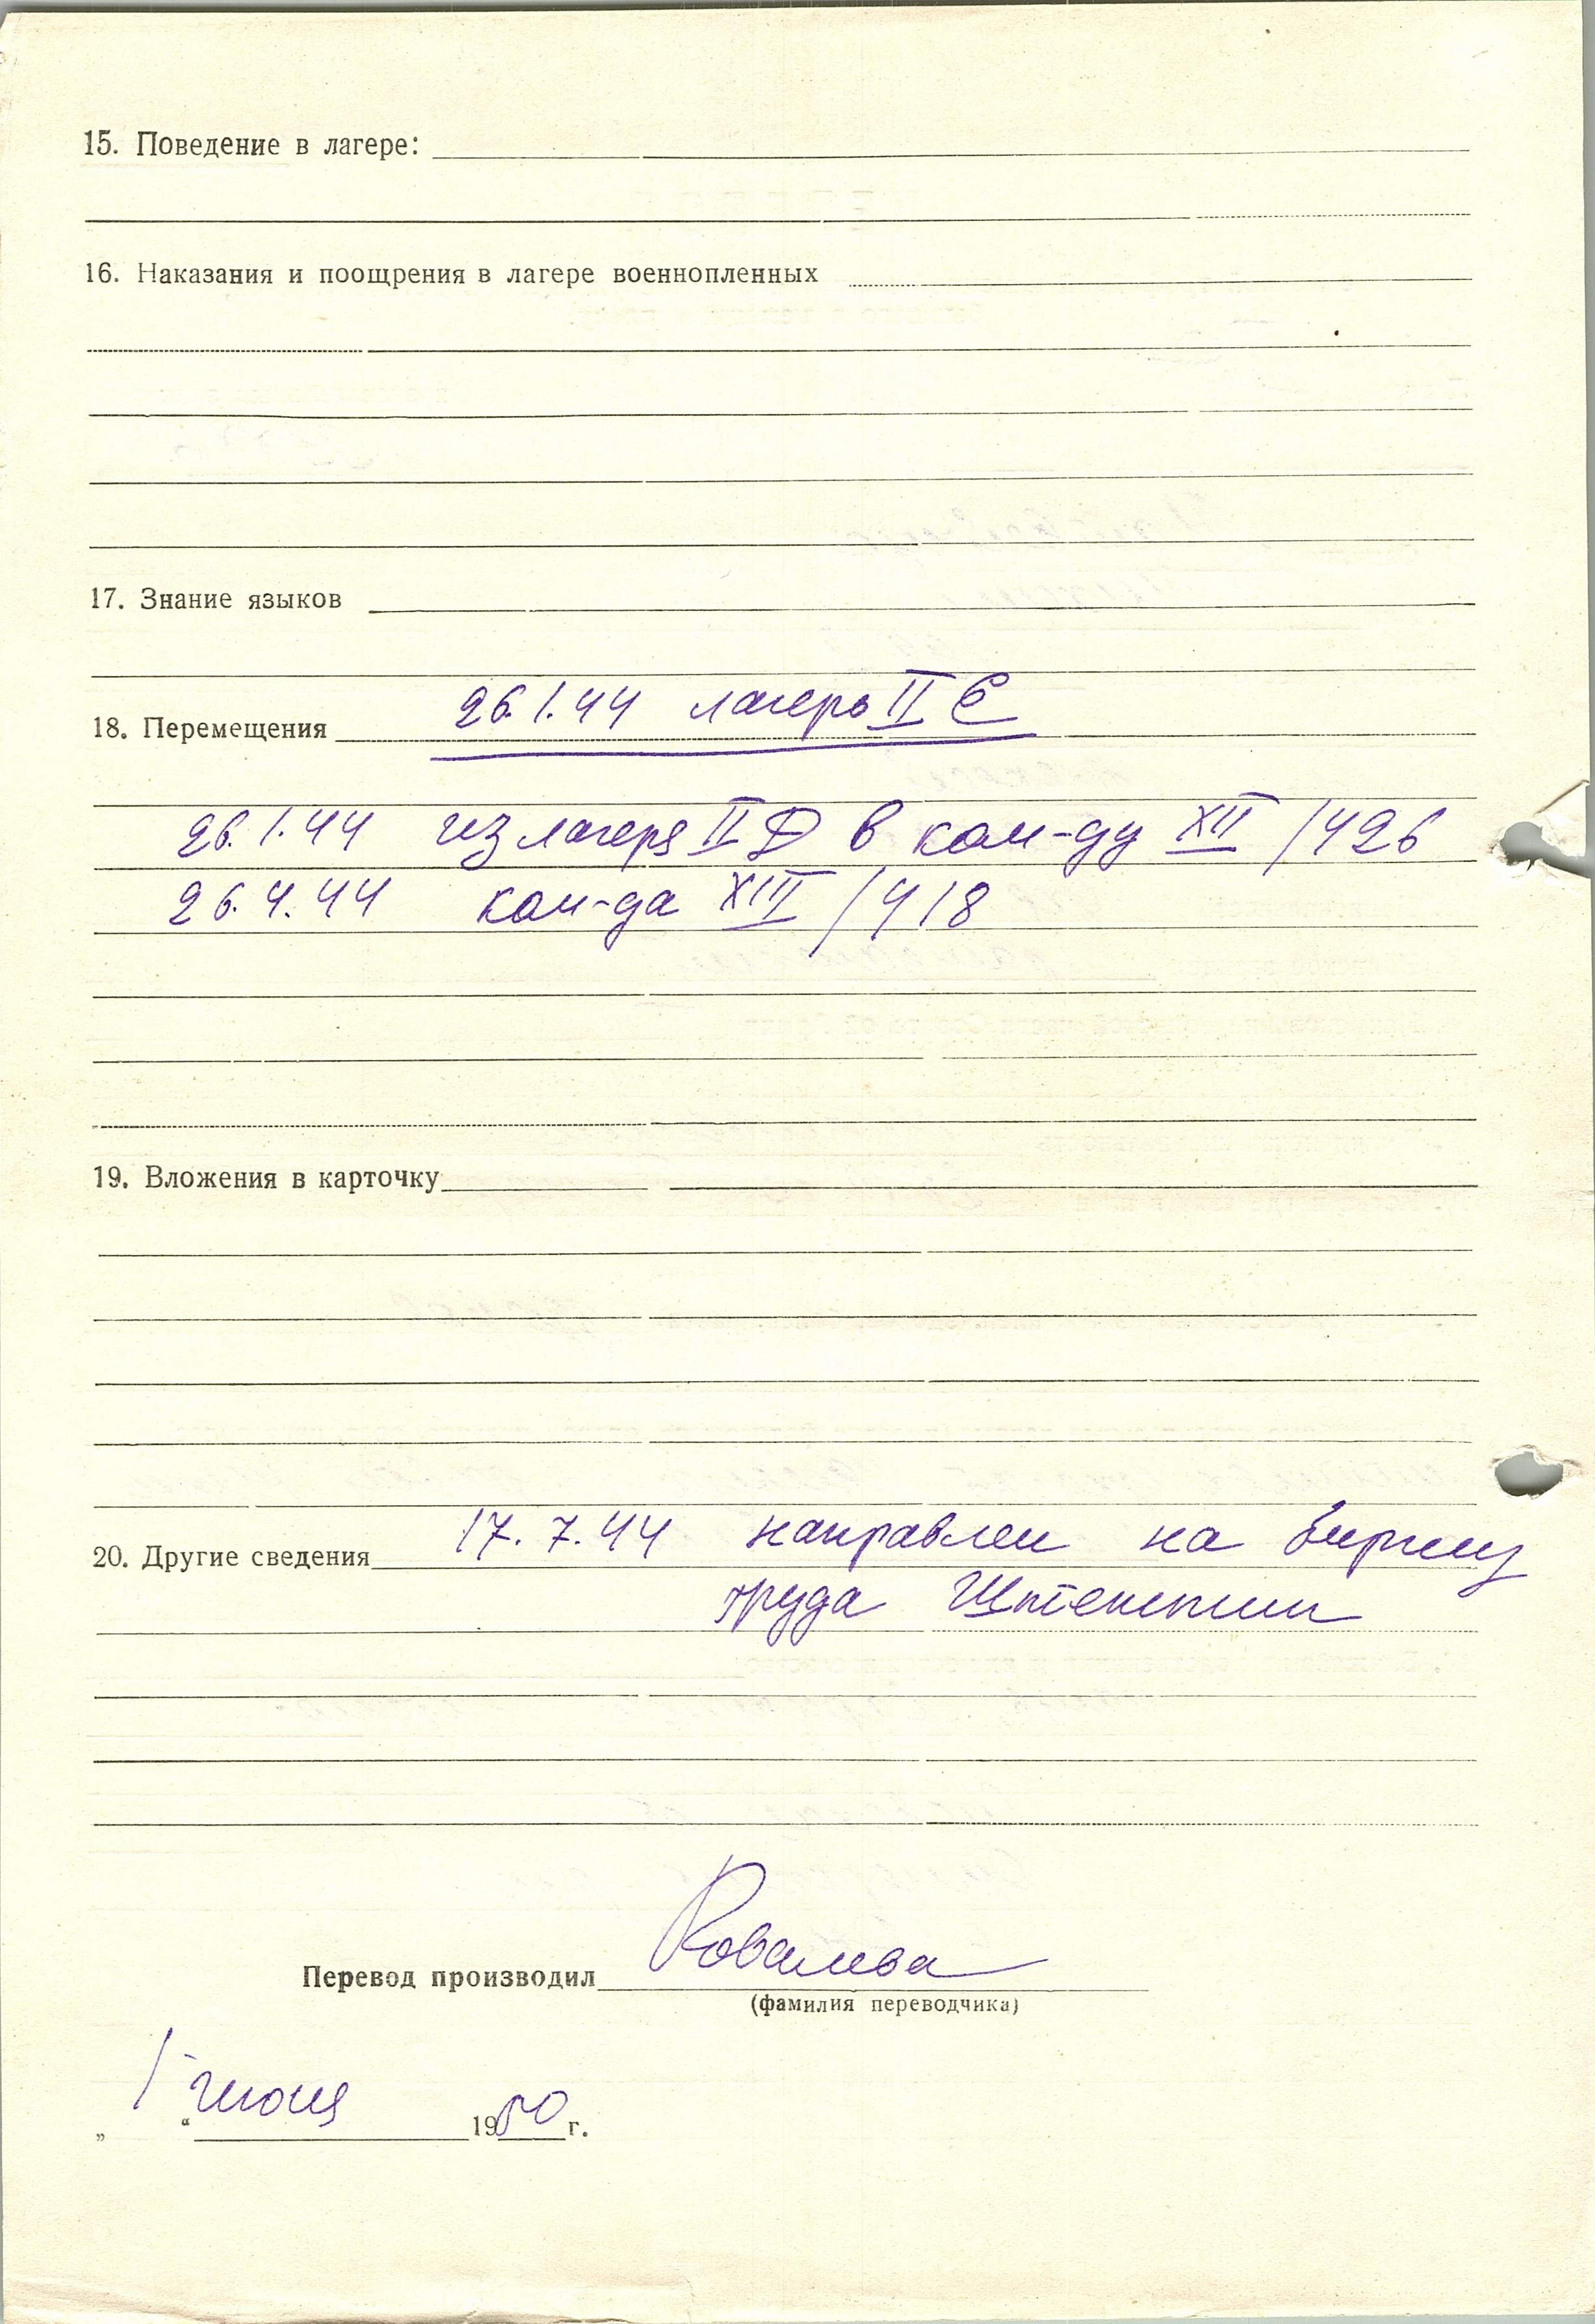 15. Поведение в лагере:
16. Наказания и поощрения в лагере военнопленных
17. Знание языков
18. Перемещения 26.1.44 лагерь II E
26.1.44 из лагеря II D в ком-ду XII /426
26.4.44 ком-да XIII /418
19. Вложения в карточку
20. Другие сведения 17.7.44 направлен на биржу
труда
Перевод производил Ковалева
(фамилия переводчика)
„1“ июня 1950 г.